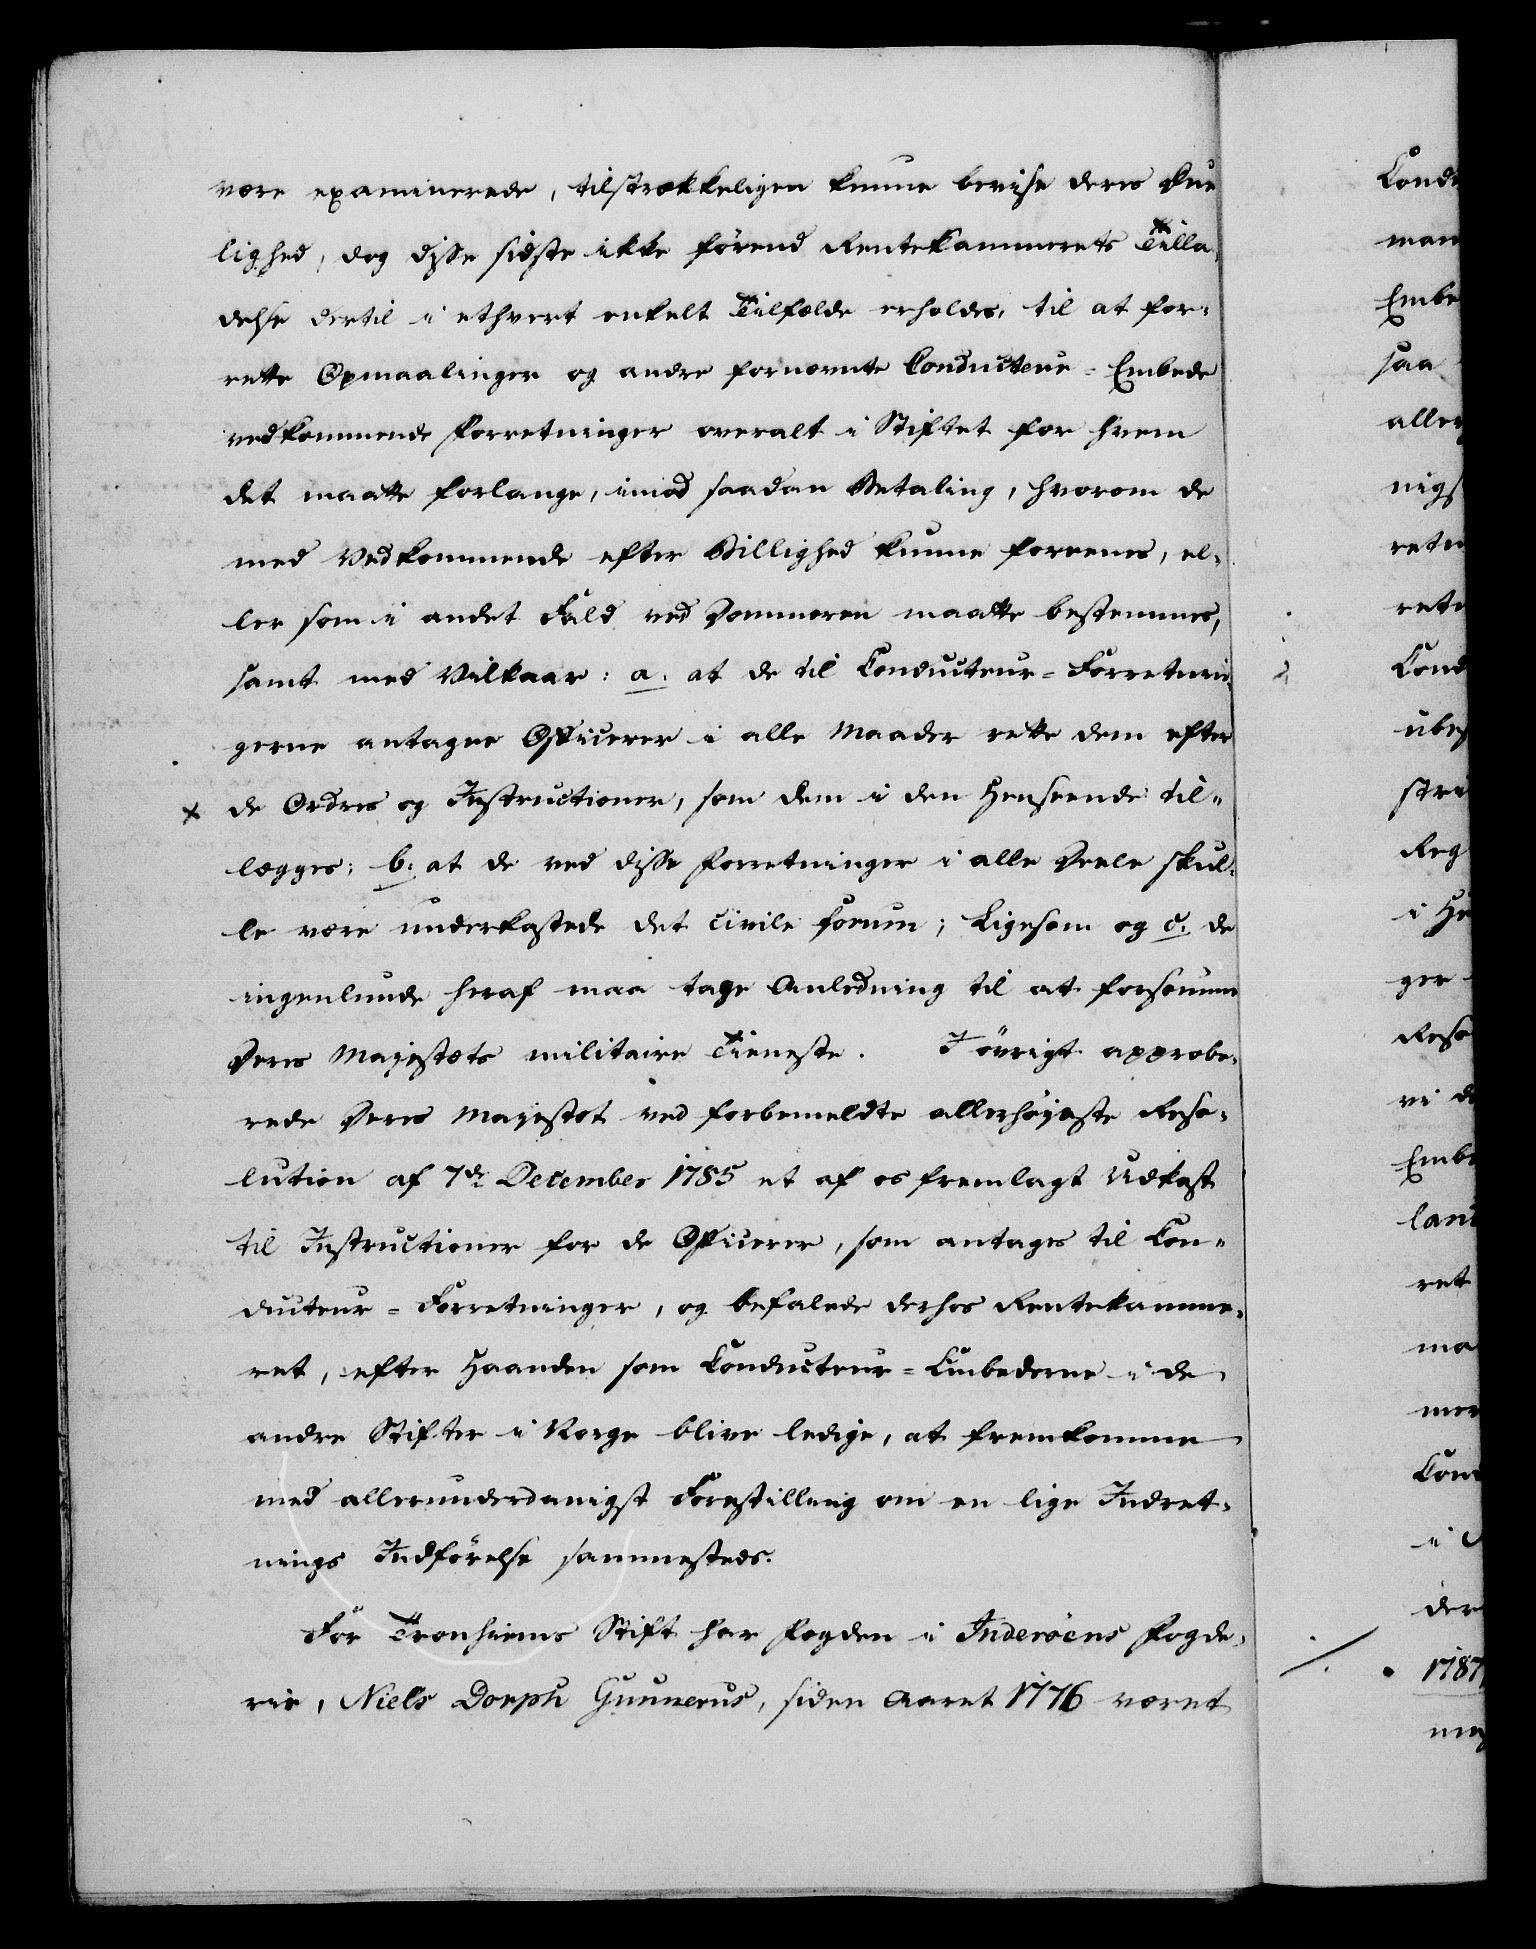 være examinerede, tilstrækkeligen kunne bevise deres Due
lighed, dog disse sidste ikke förend Rentekammerets Tilla-
delse dertil i ethvert enkelt Tilfælde erholdes, til at for-
rette Opmaalinger og andre fornævnte Conducteur-Embede
vedkommende Forretninger overalt i Stiftet for hvem
det maatte forlange, imod saadan Betaling, hvorom de
med Vedkommende efter Billighed kunne foreenes, el-
ler som i andet Fald ved Dommeren maatte bestemmes,
samt med Vilkaar: a. at de til Conducteur-Forretnin-
gerne antagne Officerer i alle Maader rette dem efter
x de Ordres og Instructioner, som dem i den Henseende til-
lægges; b. at de ved disse Forretninger i alle Deele skul-
le være underkastede det civile forum; Ligesom og c. de
ingenlunde heraf maa tage Anledning til at forsömme
Deres Majestæts militaire Tieneste. I övrigt approbe-
rede Deres Majestæt ved forbemeldte allerhöjeste Reso-
lution af 7de December 1785 et af os fremlagt Udkast
til Instructioner for de Officerer, som antages til Con-
ducteur-Forretninger, og befalede derhos Rentekamme-
ret, efter Haanden som Conducteur-Embederne i de
andre Stifter i Norge blive ledige, at fremkomme
med allerunderdanigst Forestilling om en lige Indret-
nings Indförelse sammesteds.
For Tronhiems Stift har Fogden i Inderöens Fogde-
rie, Niels Dorph Gunnerus, siden Aaret 1776 været